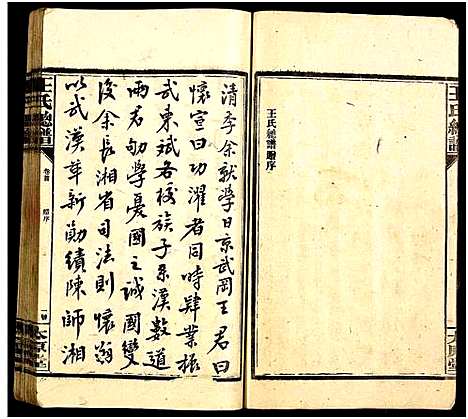 王氏總譜
王氏總譜贈序
太原堂
清季余就學日京武岡王君曰
懷宣曰功濯者同時肄業振
武東斌各校族子系漢數道
兩君劬學憂國之誠國變
後余長湘省司法則懷翁
以武漢革新勛績陳師湘
王氏總譜
卷首
贈序
太原堂